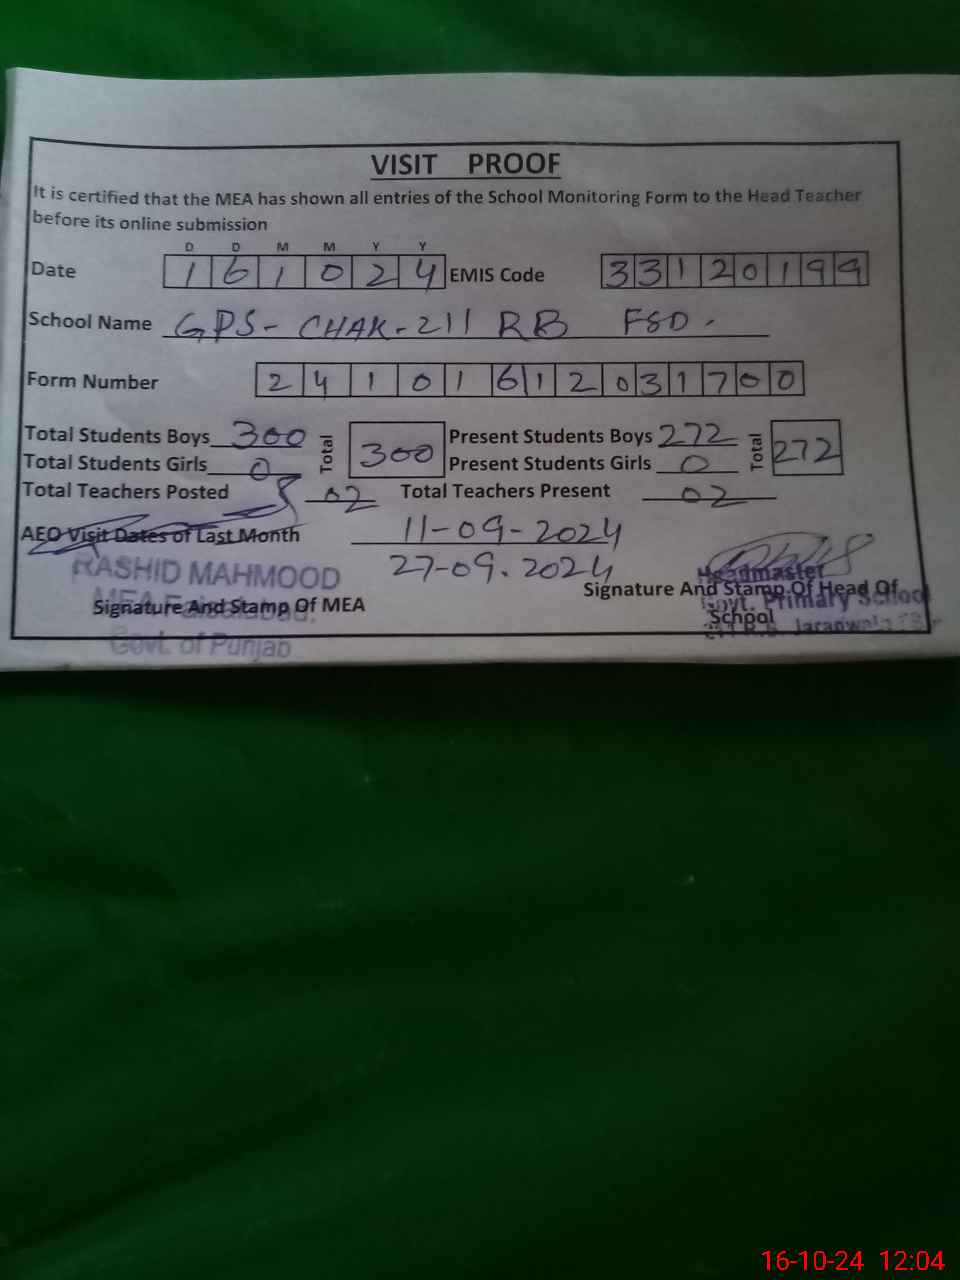 VISIT PROOF
It is certified that the MEA has shown all entries of the School Monitoring Form to the Head Teacher
before its online submission
D D M M Y Y
Date 1 6 1 0 2 4 EMIS Code 3 3 1 2 0 1 9 9
School Name GPS- CHAK-211 RB FSD.
Form Number 2 4 1 0 1 6 1 2 0 3 1 7 0 0
Total Students Boys 300 Total 300 Present Students Boys 272 Total 272
Total Students Girls 0 Present Students Girls 0
Total Teachers Posted 02 Total Teachers Present 02
AEO Visit Dates of Last Month 11-09-2024
27-09.2024
RASHID MAHMOOD
MEA Faisalabad.
Govt. of Punjab
Signature And Stamp Of MEA
Headmaster
Govt. Primary School
Jaranwala
Signature And Stamp Of Head Of
School
16-10-24 12:04